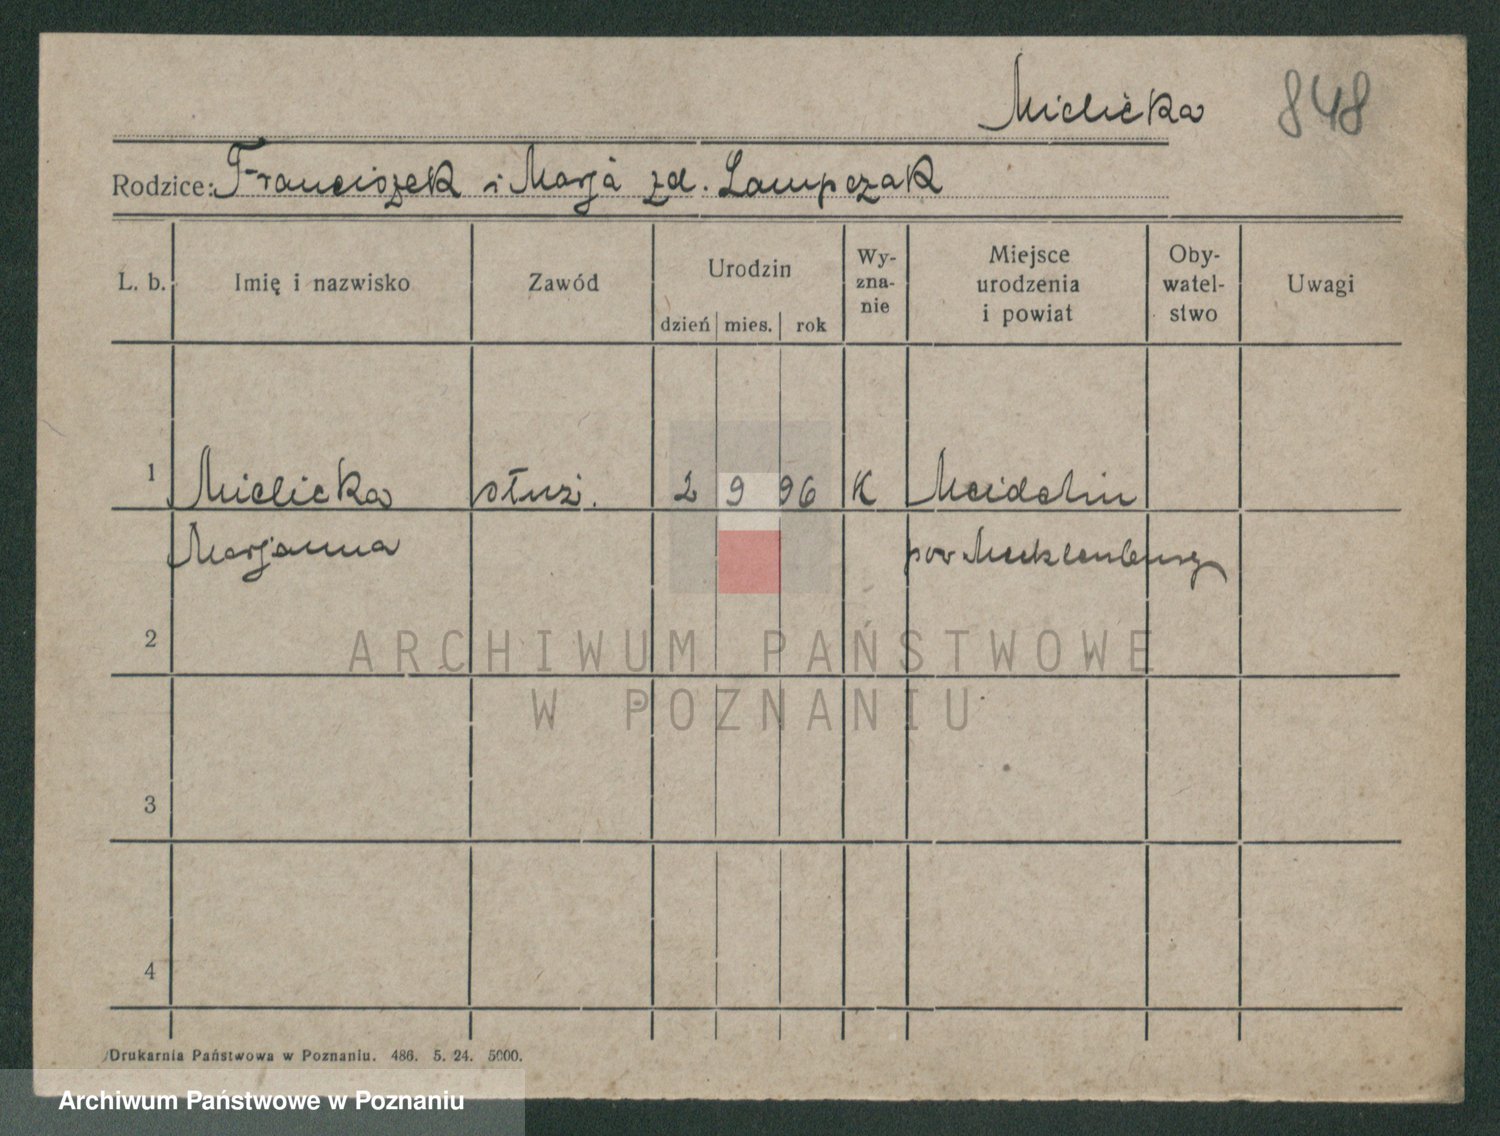 Mielicka 848
Rodzice: Franciszek i Marja zd. Lampczak
L. b. Imię i nazwisko Zawód Urodzin dzień mies. rok Wy-zna-nie Miejsce urodzenia i powiat Oby-watel-stwo Uwagi
1 Mielicka służ. 2 9 96 K
Marjanna pow Meklenburg
2
ARCHIWUM PAŃSTWOWE
W POZNANIU
3
4
Drukarnia Państwowa w Poznaniu. 486. 5. 24. 5000.
Archiwum Państwowe w Poznaniu